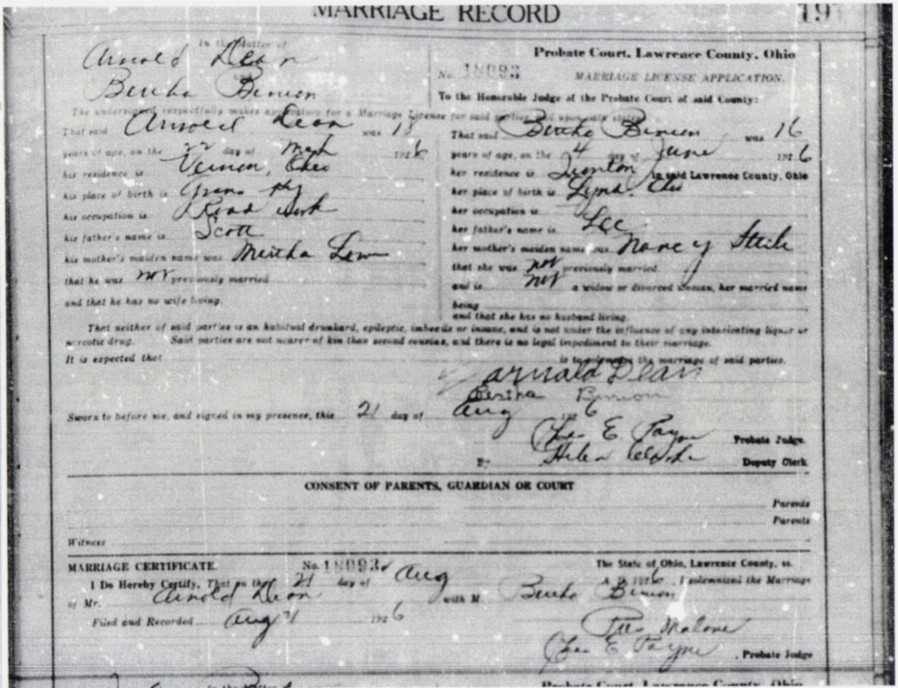 MARRIAGE RECORD 19
In the Matter of
Arnold Dean
Bertha Benion
The undersigned respectfully makes application for a Marriage License for said parties and upon
That said Arnold Dean was 18
years of age, on the 22 day of 1926
his residence is Vernon, Ohio
his place of birth is
his occupation is Road work
his father's name is Scott
his mother's maiden name was Mertha
that he was not previously married
and that he has no wife living.
Probate Court, Lawrence County, Ohio
No. 18093 MARRIAGE LICENSE APPLICATION.
To the Honorable Judge of the Probate Court of said County:
That said Bertha Benion was 16
years of age, on the 4 day of June 1926
her residence is Ironton in said Lawrence County, Ohio
her place of birth is Ohio
her occupation is
her father's name is Lee
her mother's maiden name was Nancy
that she was not previously married
and is not a widow or divorced woman, her married name
being
and that she has no husband living.
That neither of said parties is an habitual drunkard, epileptic, imbecile or insane, and is not under the influence of any intoxicating liquor or
narcotic drug. Said parties are not nearer of kin than second cousins, and there is no legal impediment to their marriage.
It is expected that is to solemnize the marriage of said parties.
Arnold Dean
Bertha Benion
Sworn to before me, and signed in my presence, this 21 day of Aug 1926
Chas E Payne Probate Judge.
By Helen Deputy Clerk.
CONSENT OF PARENTS, GUARDIAN OR COURT
Parents
Parents
Witness
MARRIAGE CERTIFICATE. No. 18093 The State of Ohio, Lawrence County, ss.
I Do Hereby Certify, That on the 21 day of Aug A. D. 1926, I solemnized the Marriage
of Mr. Arnold Dean with M Bertha Benion
Filed and Recorded Aug 21 1926
Malone
Chas E Payne, Probate Judge
Probate Court, Lawrence County, Ohio